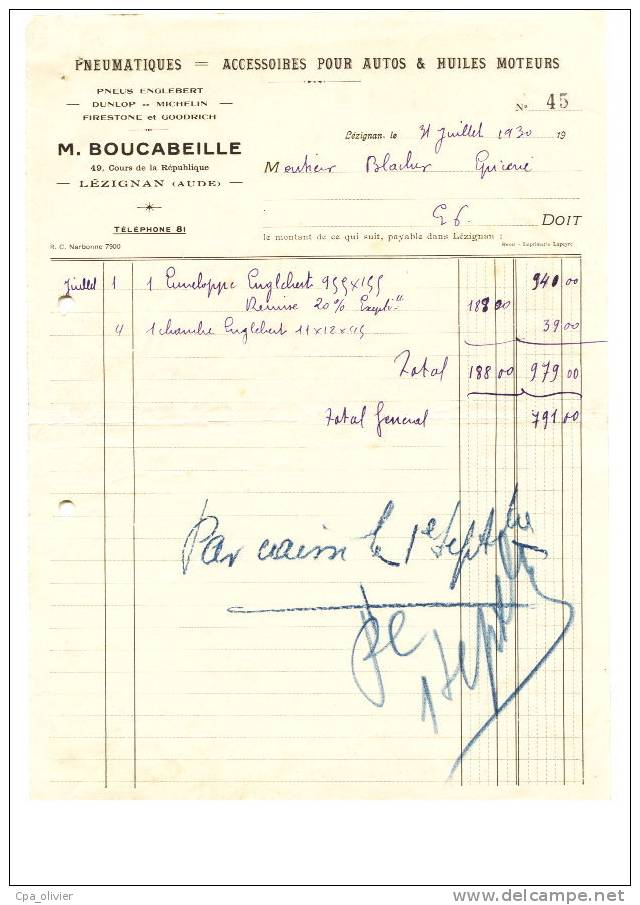 PNEUMATIQUES = ACCESSOIRES POUR AUTOS & HUILES MOTEURS
PNEUS ENGLEBERT
DUNLOP — MICHELIN
FIRESTONE et GOODRICH
N° 45
Lézignan, le 31 Juillet 1930 19
M. BOUCABEILLE
49, Cours de la République
— LÉZIGNAN (AUDE) —
Monsieur Épicerie
DOIT
TÉLÉPHONE 81
le montant de ce qui suit, payable dans Lézignan :
R. C. Narbonne 7900
Imprimerie Lapeyre
Juillet 1 1 Enveloppe Englebert 940 00
Remise 20% 188 00
4 1 chambre Englebert 11x12x45 39 00
Total 188 00 979 00
Total General 791 00
Par caisse le 1e Septbre
Cpa_olivier
www.delcampe.net